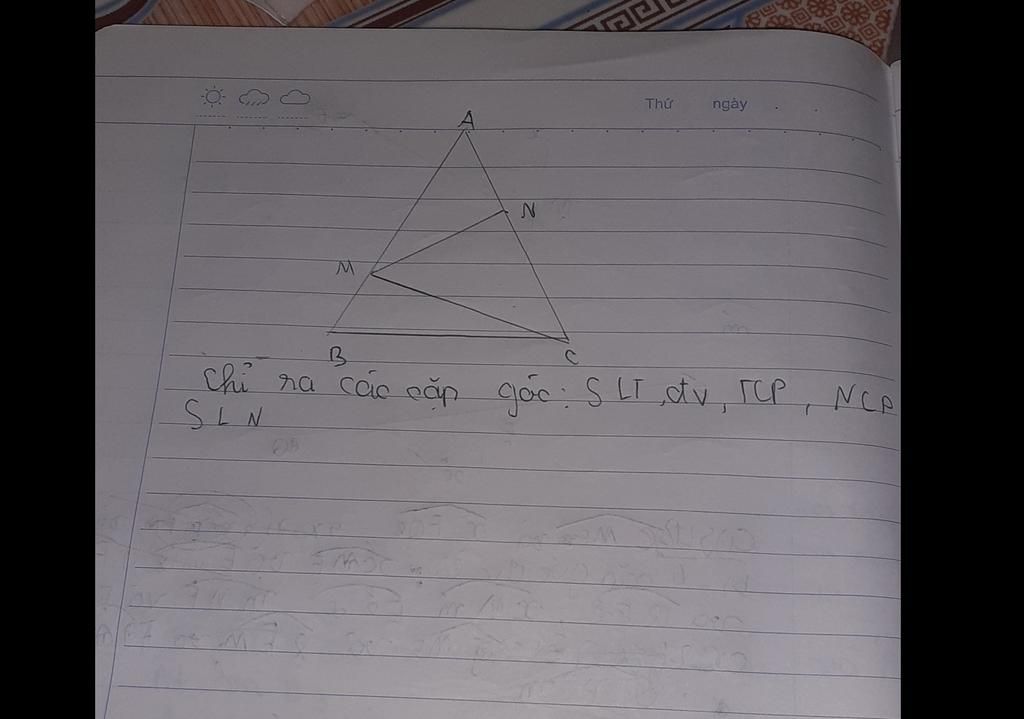 Thứ ngày
A
N
M
B C
Chỉ ra các cặp góc: SLT, đv, TCP, NCP
SLN